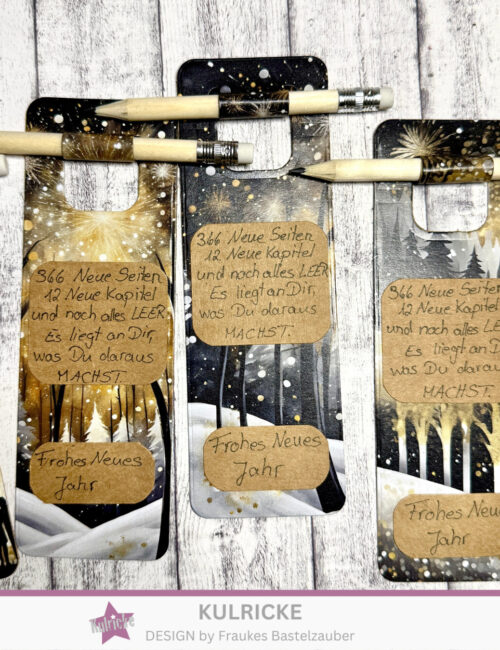 366 Neue Seiten
12 Neue Kapitel
und noch alles LEER.
Es liegt an Dir,
was Du daraus
MACHST.
Frohes Neues
Jahr
366 Neue Seiten
12 Neue Kapitel
und noch alles LEER
Es liegt an Dir,
was Du daraus
MACHST.
Frohes Neues
Jahr
366 Neue Seiten
12 Neue Kapitel
und noch alles
Es liegt an
was Du daraus
MACHST.
Frohes
Jahr
Kulricke
KULRICKE
DESIGN by Fraukes Bastelzauber